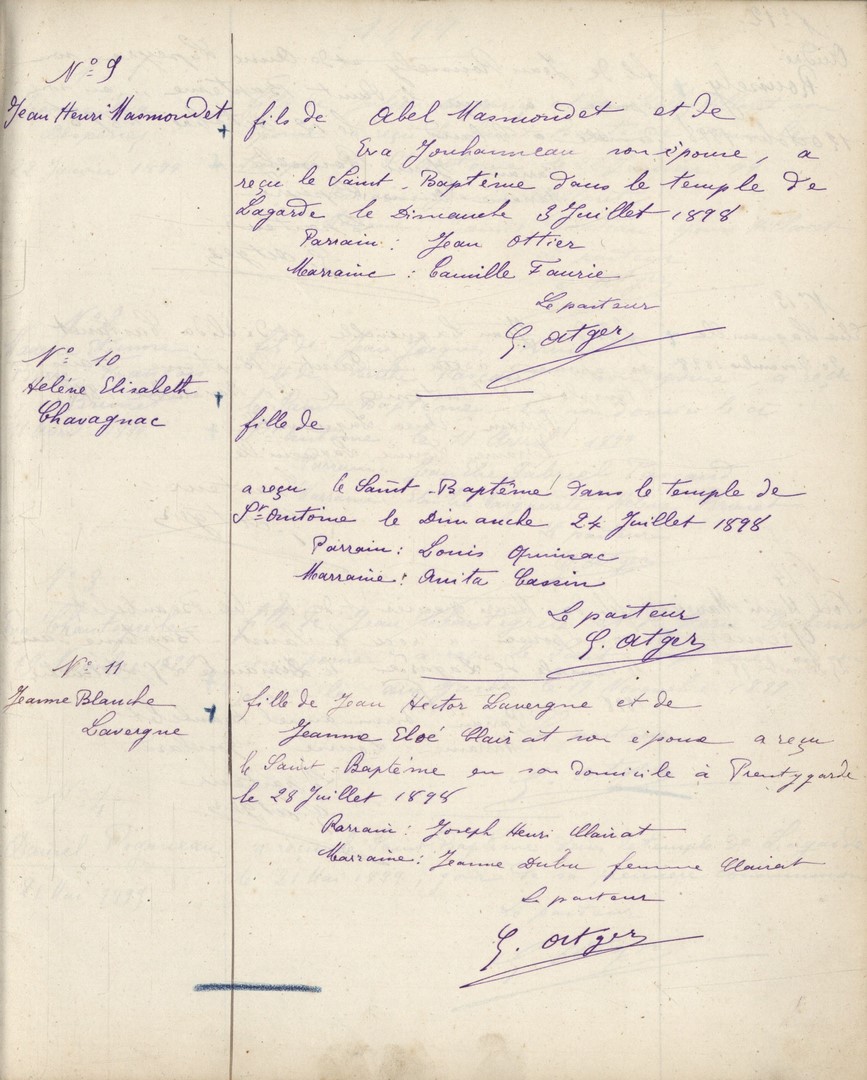 N° 9
Jean Henri Masmondet
fils de Abel Masmondet et de
Eva Jouhanneau son épouse, a
reçu le Saint-Baptême dans le temple de
Lagarde le Dimanche 3 Juillet 1898
Parrain : Jean Ottier
Marraine : Camille Faurie
Le pasteur
G. Atger
N° 10
Helène Elisabeth
Chavagnac
fille de
a reçu le Saint-Baptême dans le temple de
St Antoine le Dimanche 24 Juillet 1898
Parrain : Louis Quinsac
Marraine : Anita Cassin
Le pasteur
G. Atger
N° 11
Jeanne Blanche
Lavergne
fille de Jean Hector Lavergne et de
Jeanne Eloé Clairat son épouse a reçu
le Saint-Baptême en son domicile à
le 28 Juillet 1898
Parrain : Joseph Henri Clairat
Marraine : Jeanne Dubu femme Clairat
Le pasteur
G. Atger